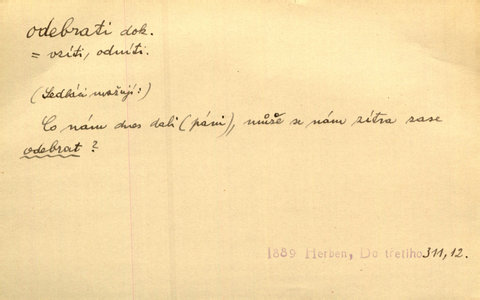 odebrati dok.
= vzíti, odníti.
(Sedláci uvažují:)
Co nám dnes dali (páni), může se nám zítra zase
odebrat?
1889 Herben, Do třetího 311, 12.